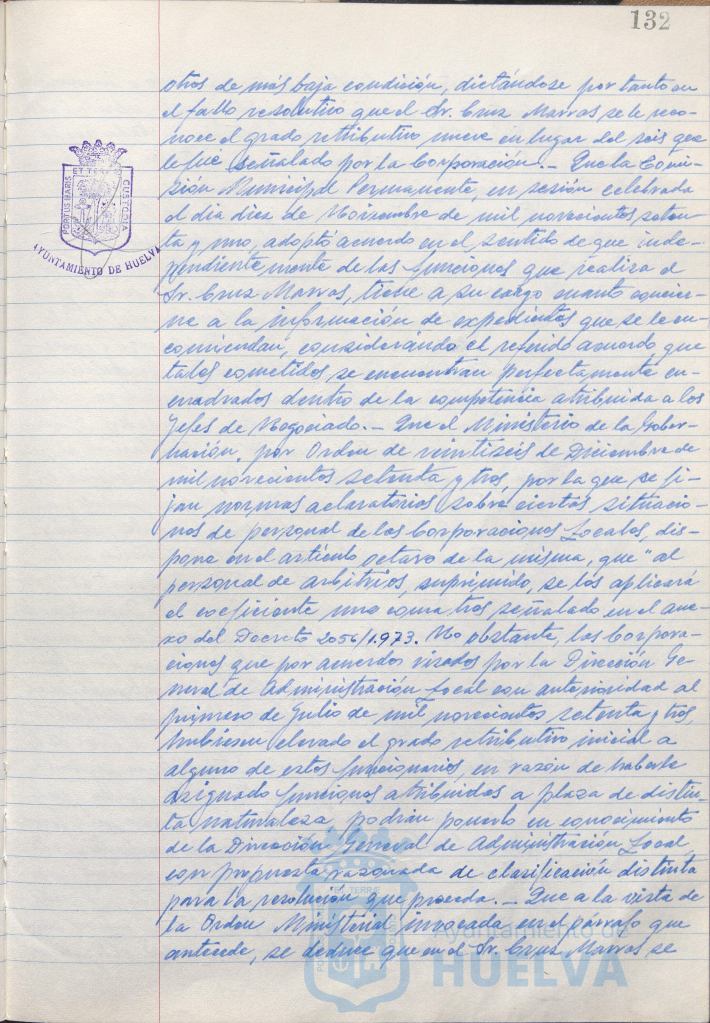 132
otros de más baja condición, dictándose por tanto en
el fallo resolutivo que el Sr. Cruz Marras se le reco-
noce el grado retributivo nueve en lugar del seis que
le fue señalado por la Corporación.- Que la Comi-
sión Municipal Permanente, en sesión celebrada
el dia diez de Noviembre de mil novecientos seten-
ta y uno, adoptó acuerdo en el sentido de que inde-
pendientemente de las funciones que realiza el
Sr. Cruz Marras, tiene a su cargo cuanto concier-
ne a la información de expedientes que se le en-
comiendan, considerando el referido acuerdo que
tales cometidos se encuentran perfectamente en-
cuadrados dentro de la competencia atribuida a los
Jefes de Negociado.- Que el Ministerio de la Gober-
nación, por Orden de veintiseis de Diciembre de
mil novecientos setenta y tres, por la que se fi-
jan normas aclaratorias sobre ciertas situacio-
nes de personal de las Corporaciones Locales, dis-
pone en el artículo octavo de la misma, que "al
personal de arbitrios, suprimido, se les aplicará
el coeficiente uno coma tres señalado en el ane-
xo del Decreto 2056/1.973. No obstante, las Corpora-
ciones que por acuerdos visados por la Dirección Ge-
neral de Administración Local con anterioridad al
primero de Julio de mil novecientos setenta y tres,
hubiesen elevado el grado retributivo inicial a
alguno de estos funcionarios, en razón de haberle
asignado funciones atribuidas a plaza de distin-
ta naturaleza podrán ponerlo en conocimiento
de la Dirección General de Administración Local
con propuesta razonada de clasificación distinta
para la resolución que proceda.- Que a la vista de
la Orden Ministerial invocada en el párrafo que
antecede, se deduce que en el Sr. Cruz Marras se
PORTUS MARIS ET TERRAE CUSTODIA
AYUNTAMIENTO DE HUELVA
Ayuntamiento de
HUELVA